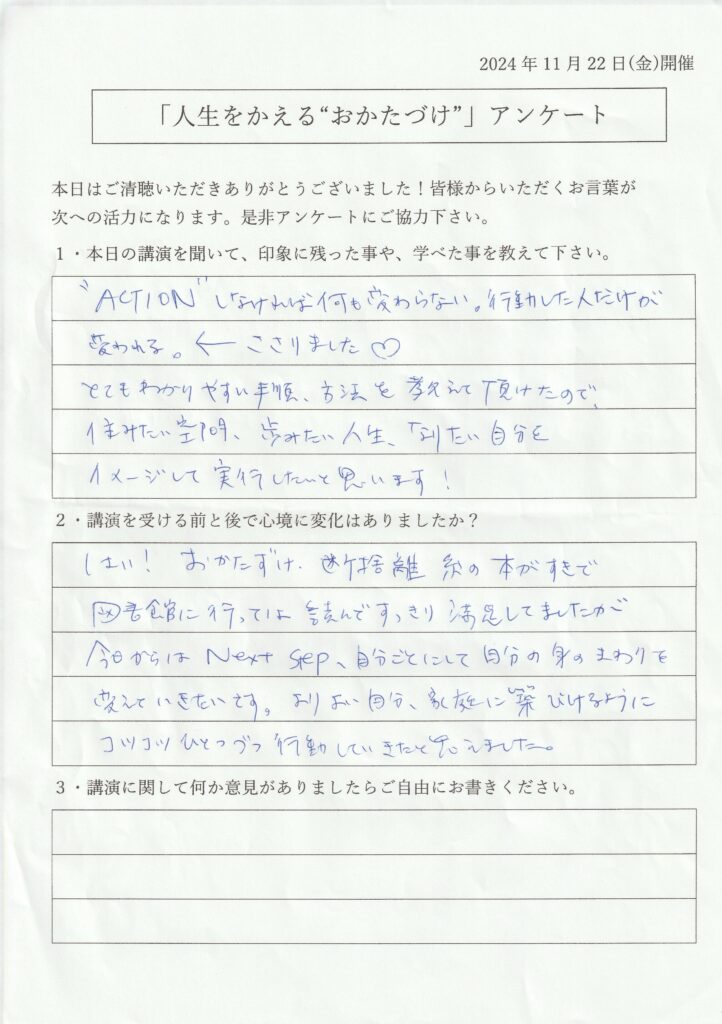 2024年11月22日(金)開催
「人生をかえる“おかたづけ”」アンケート
本日はご清聴いただきありがとうございました！皆様からいただくお言葉が
次への活力になります。是非アンケートにご協力下さい。
１・本日の講演を聞いて、印象に残った事や、学べた事を教えて下さい。
“ACTION”しなければ何も変わらない。行動した人だけが
変われる。← ささりました♡
とてもわかりやすい手順、方法を教えて頂けたので、
住みたい空間、歩みたい人生、なりたい自分を
イメージして実行したいと思います！
２・講演を受ける前と後で心境に変化はありましたか？
はい！ おかたずけ、断捨離 系の本がすきで
図書館に行っては読んですっきり満足してましたが
今日からは Next Step、自分ごとにして自分の身のまわりを
変えていきたいです。よりよい自分、家庭に築けるように
コツコツひとつづつ行動していきたと思えました。
３・講演に関して何か意見がありましたらご自由にお書きください。